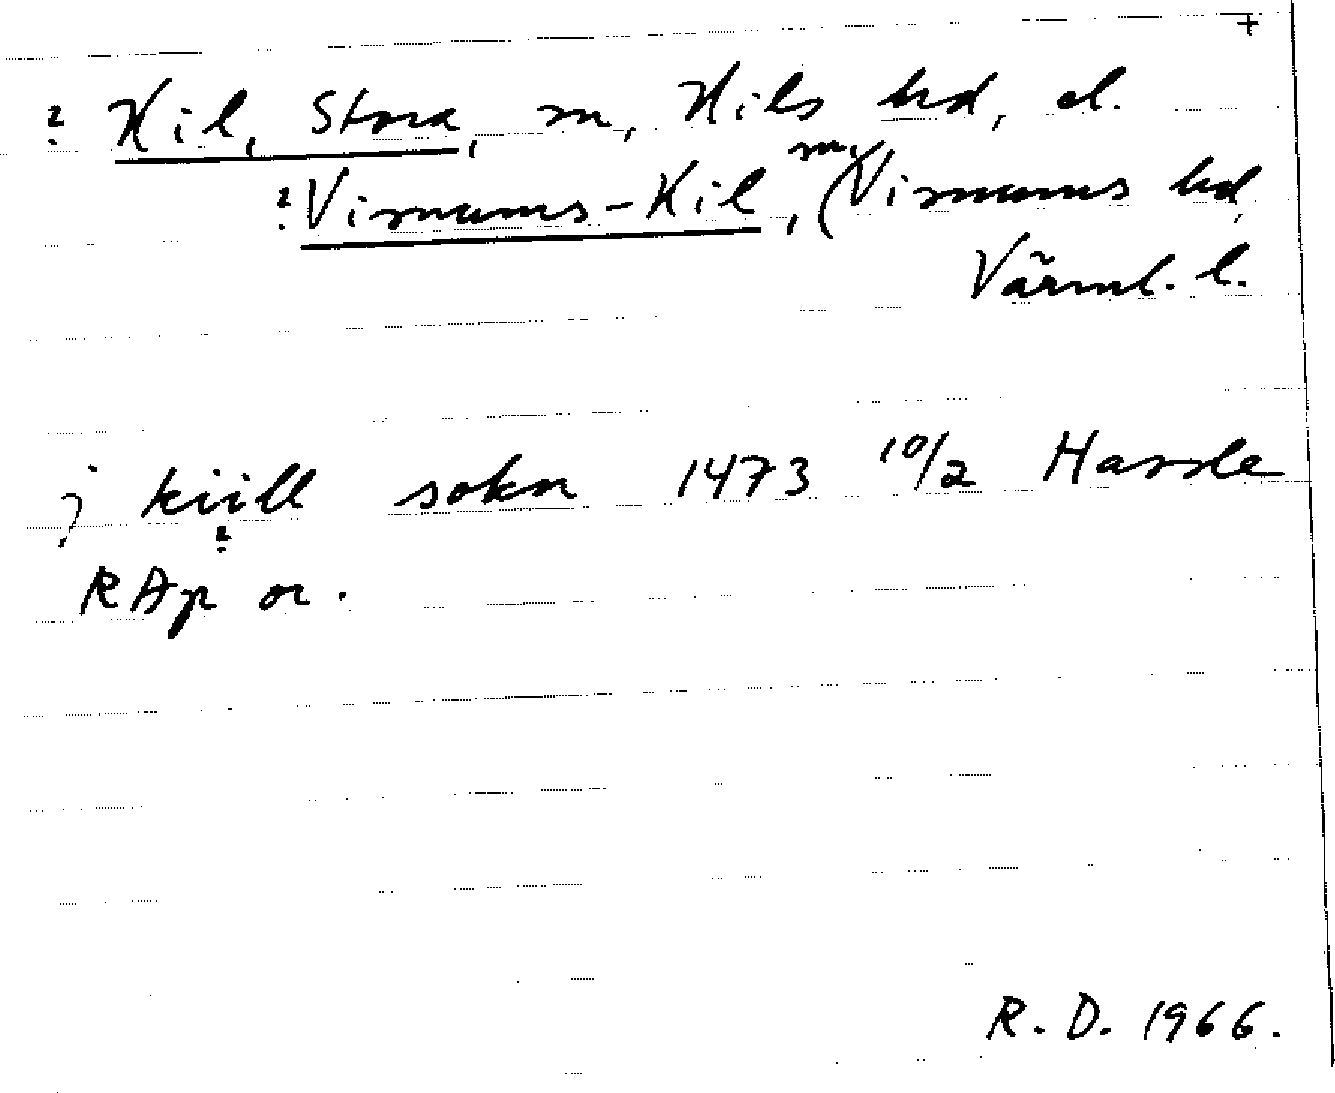 +
? Kil, Stora, sn, Kils hd, el.
? Visnums-Kil, sn, (Visnums hd,
Värml. l.
j kiill sokn 1473 10/2 Hassle
?
RAp or.
R. D. 1966.